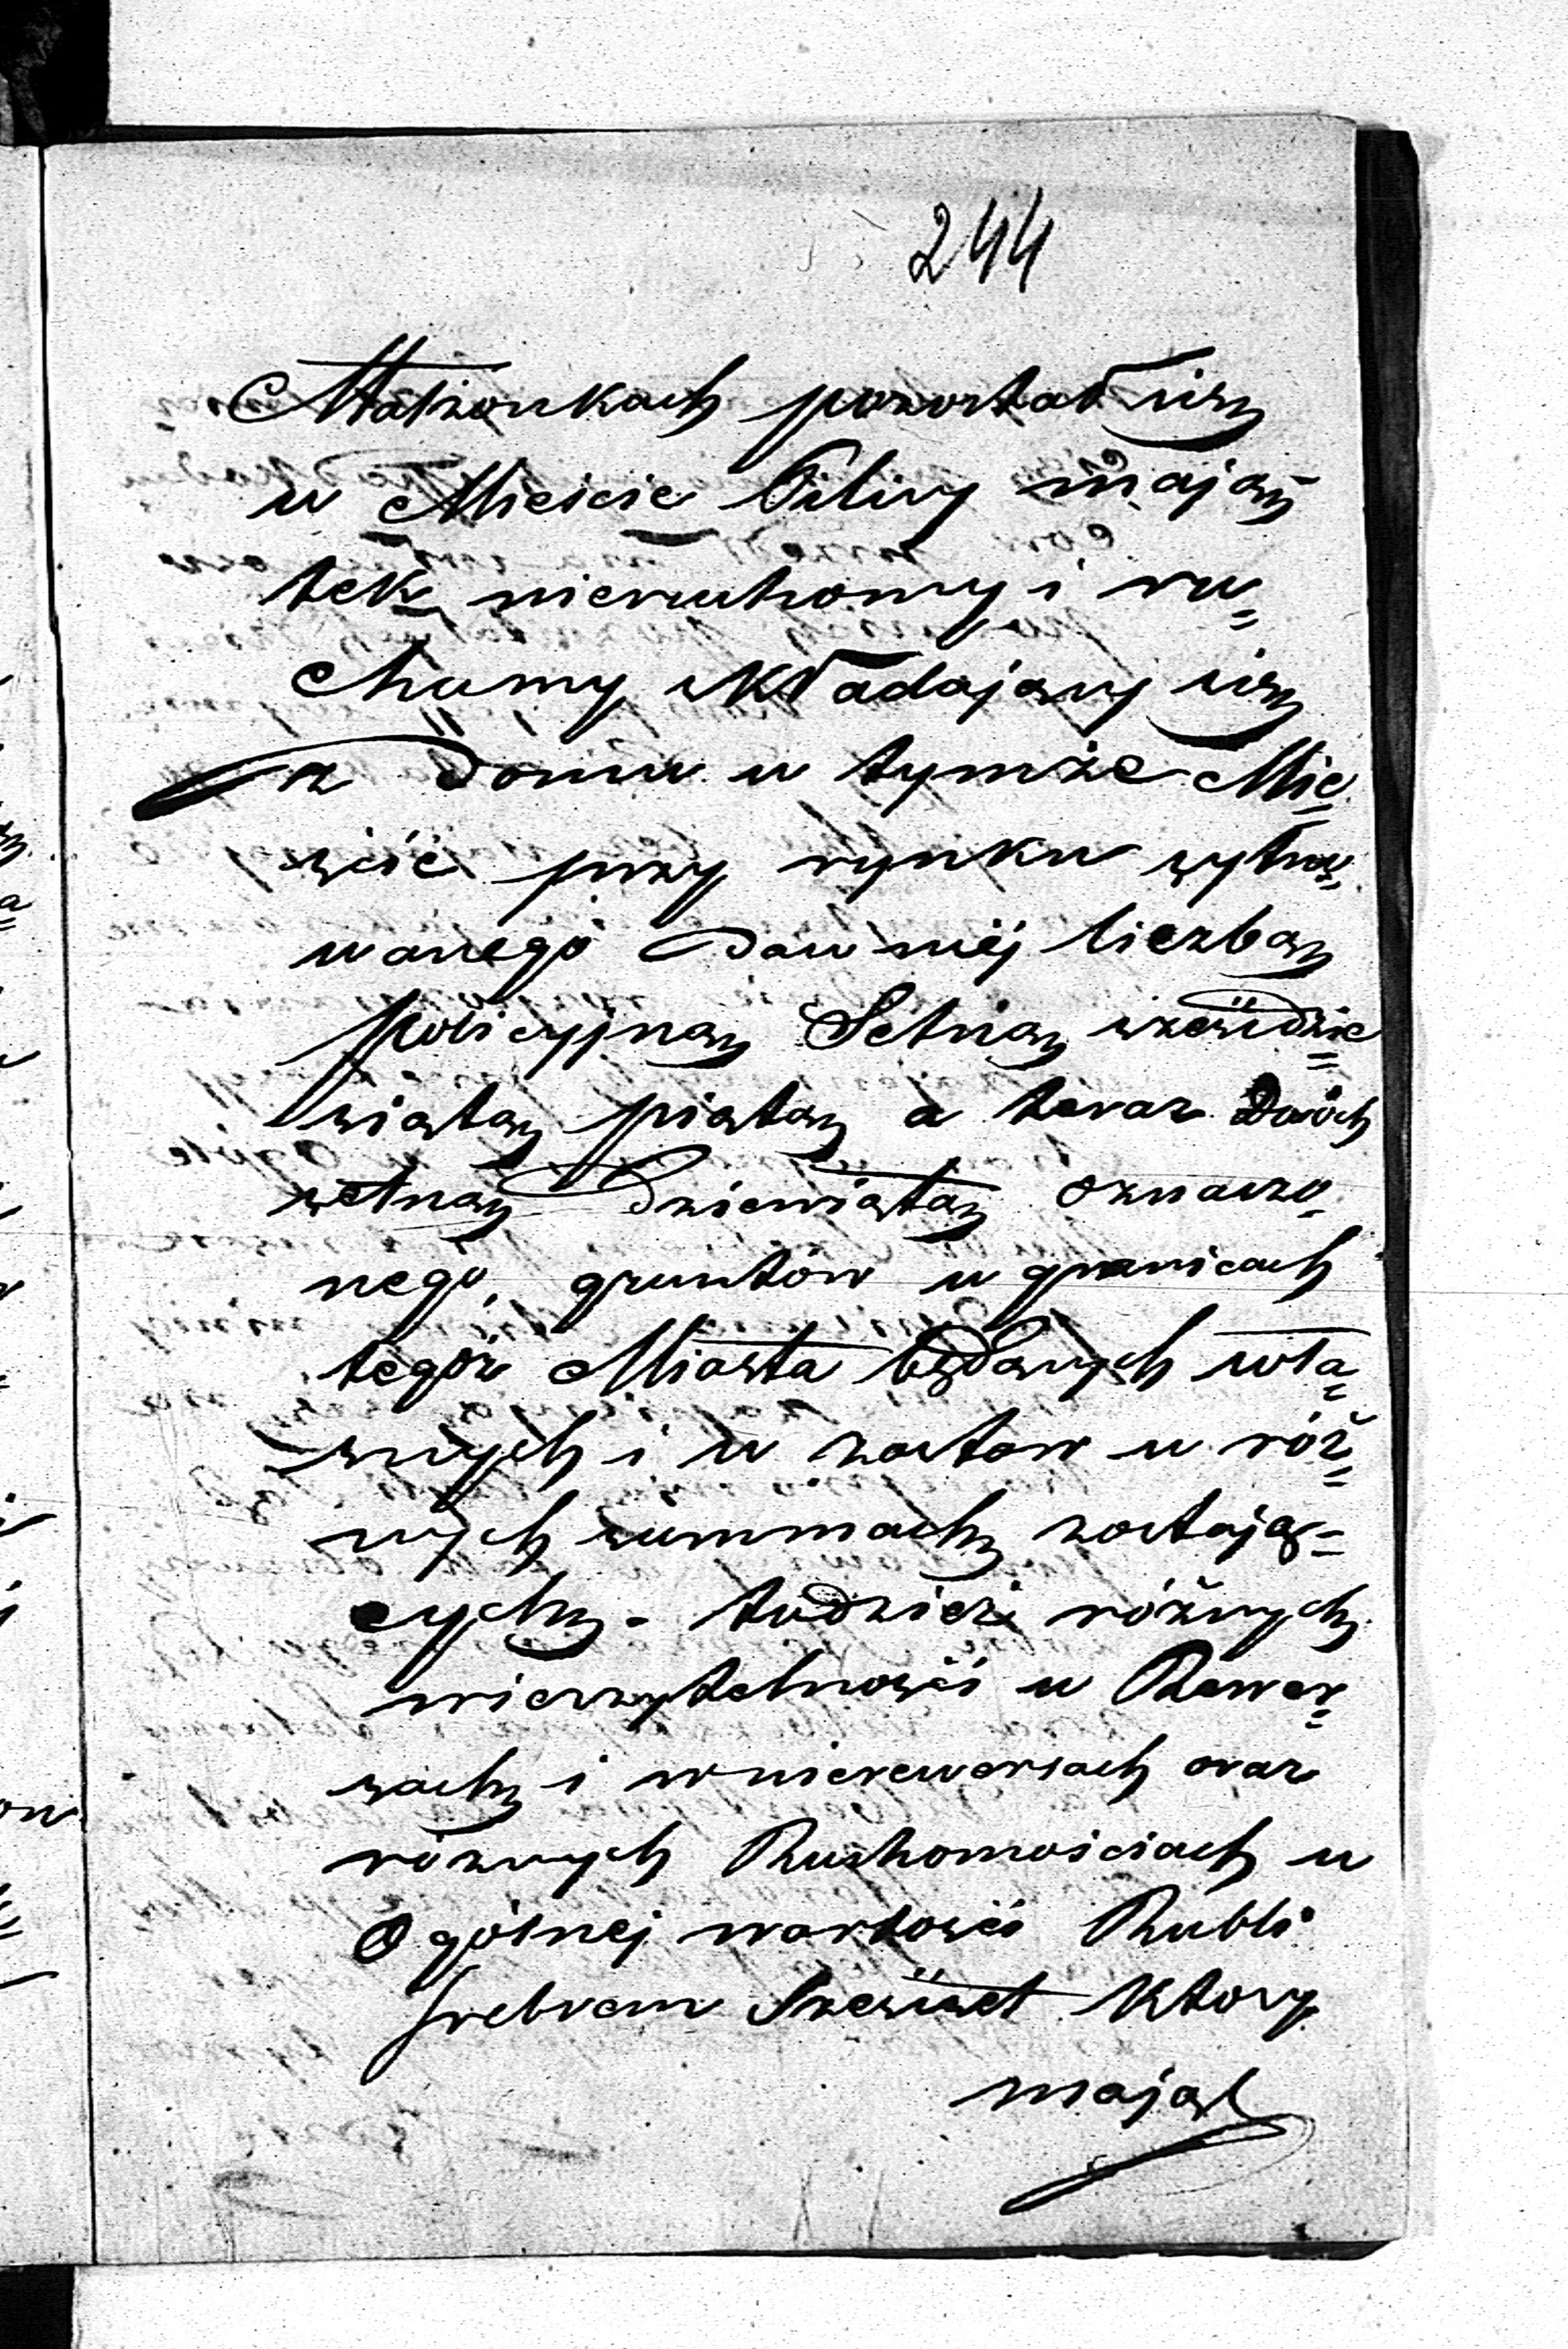 244
Małżonkach pozostał się
w Mieście Pilicy mają-
tek nieruchomy i ru=
chomy składający się
z Domu w tymże Mie=
ście przy rynku sytuo=
wanego dawniej liczbą
policyjną Setną sześćdzie=
siątą piątą a teraz Dwóch
setną Dziewiątą oznaczo=
nego, gruntów w granicach
tegóż Miasta będących wła=
snych i w zastaw w róż=
nych summach zostają=
cych - tudzież różnych
wierzytelności w Rewer=
sach i w nierewersach oraz
różnych Ruchomościach w
Ogólnej wartości Rubli
Srebrem Sześćset który
mająt